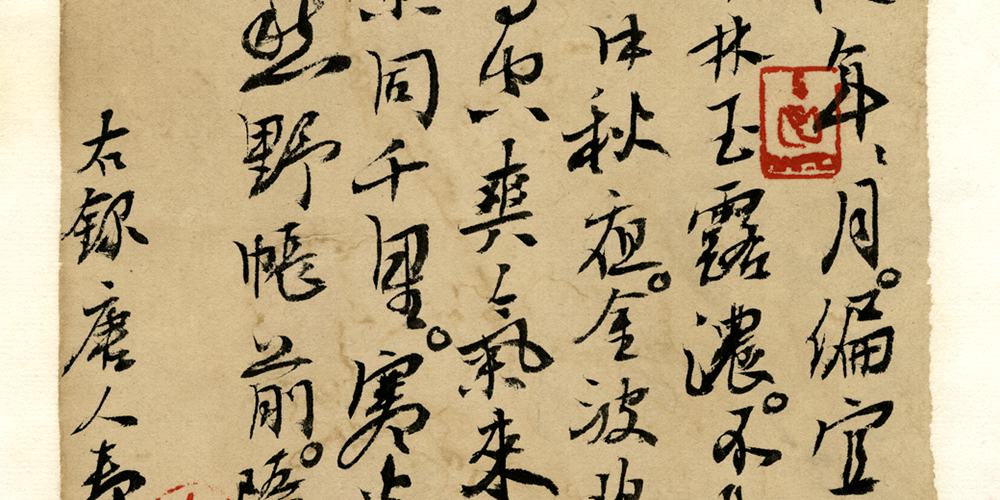 年、月。偏宜
林玉露濃。不
中秋夜。金波
爽氣來
同千里。寒
愁野帳前。隔
右錄唐人